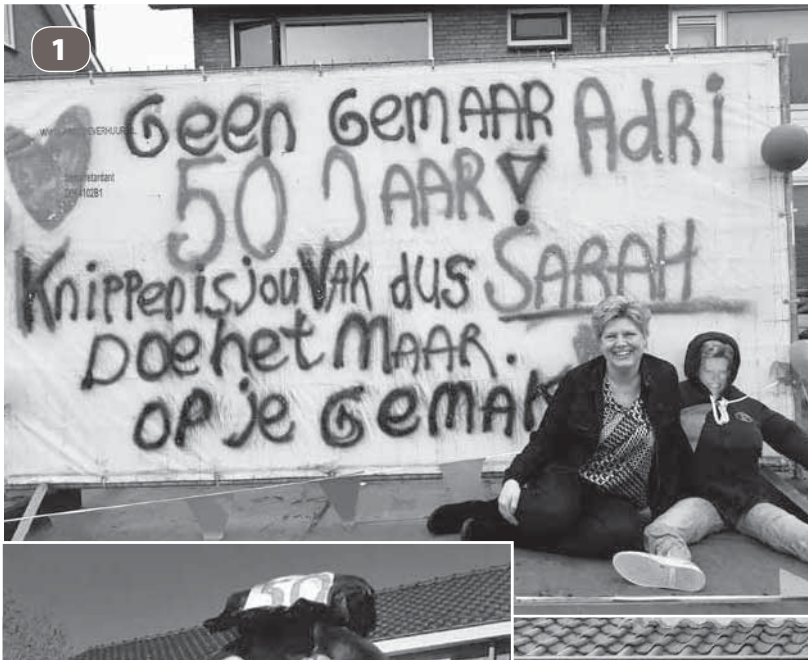 1
Geen GemAAR Adri
50 JAAR!
Knippen is jou VAK dus SARAH
Doe het MAAR.
op je GEMAK
50